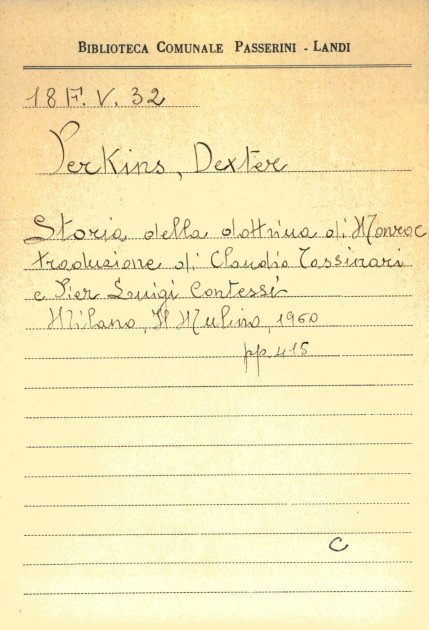 BIBLIOTECA COMUNALE PASSERINI - LANDI
18 F. V. 32
Perkins, Dexter
Storia della dottrina di Monroe
traduzione di Claudio Tassinari
e Pier Luigi Contessi
Milano, Il Mulino, 1960
pp. 415
C